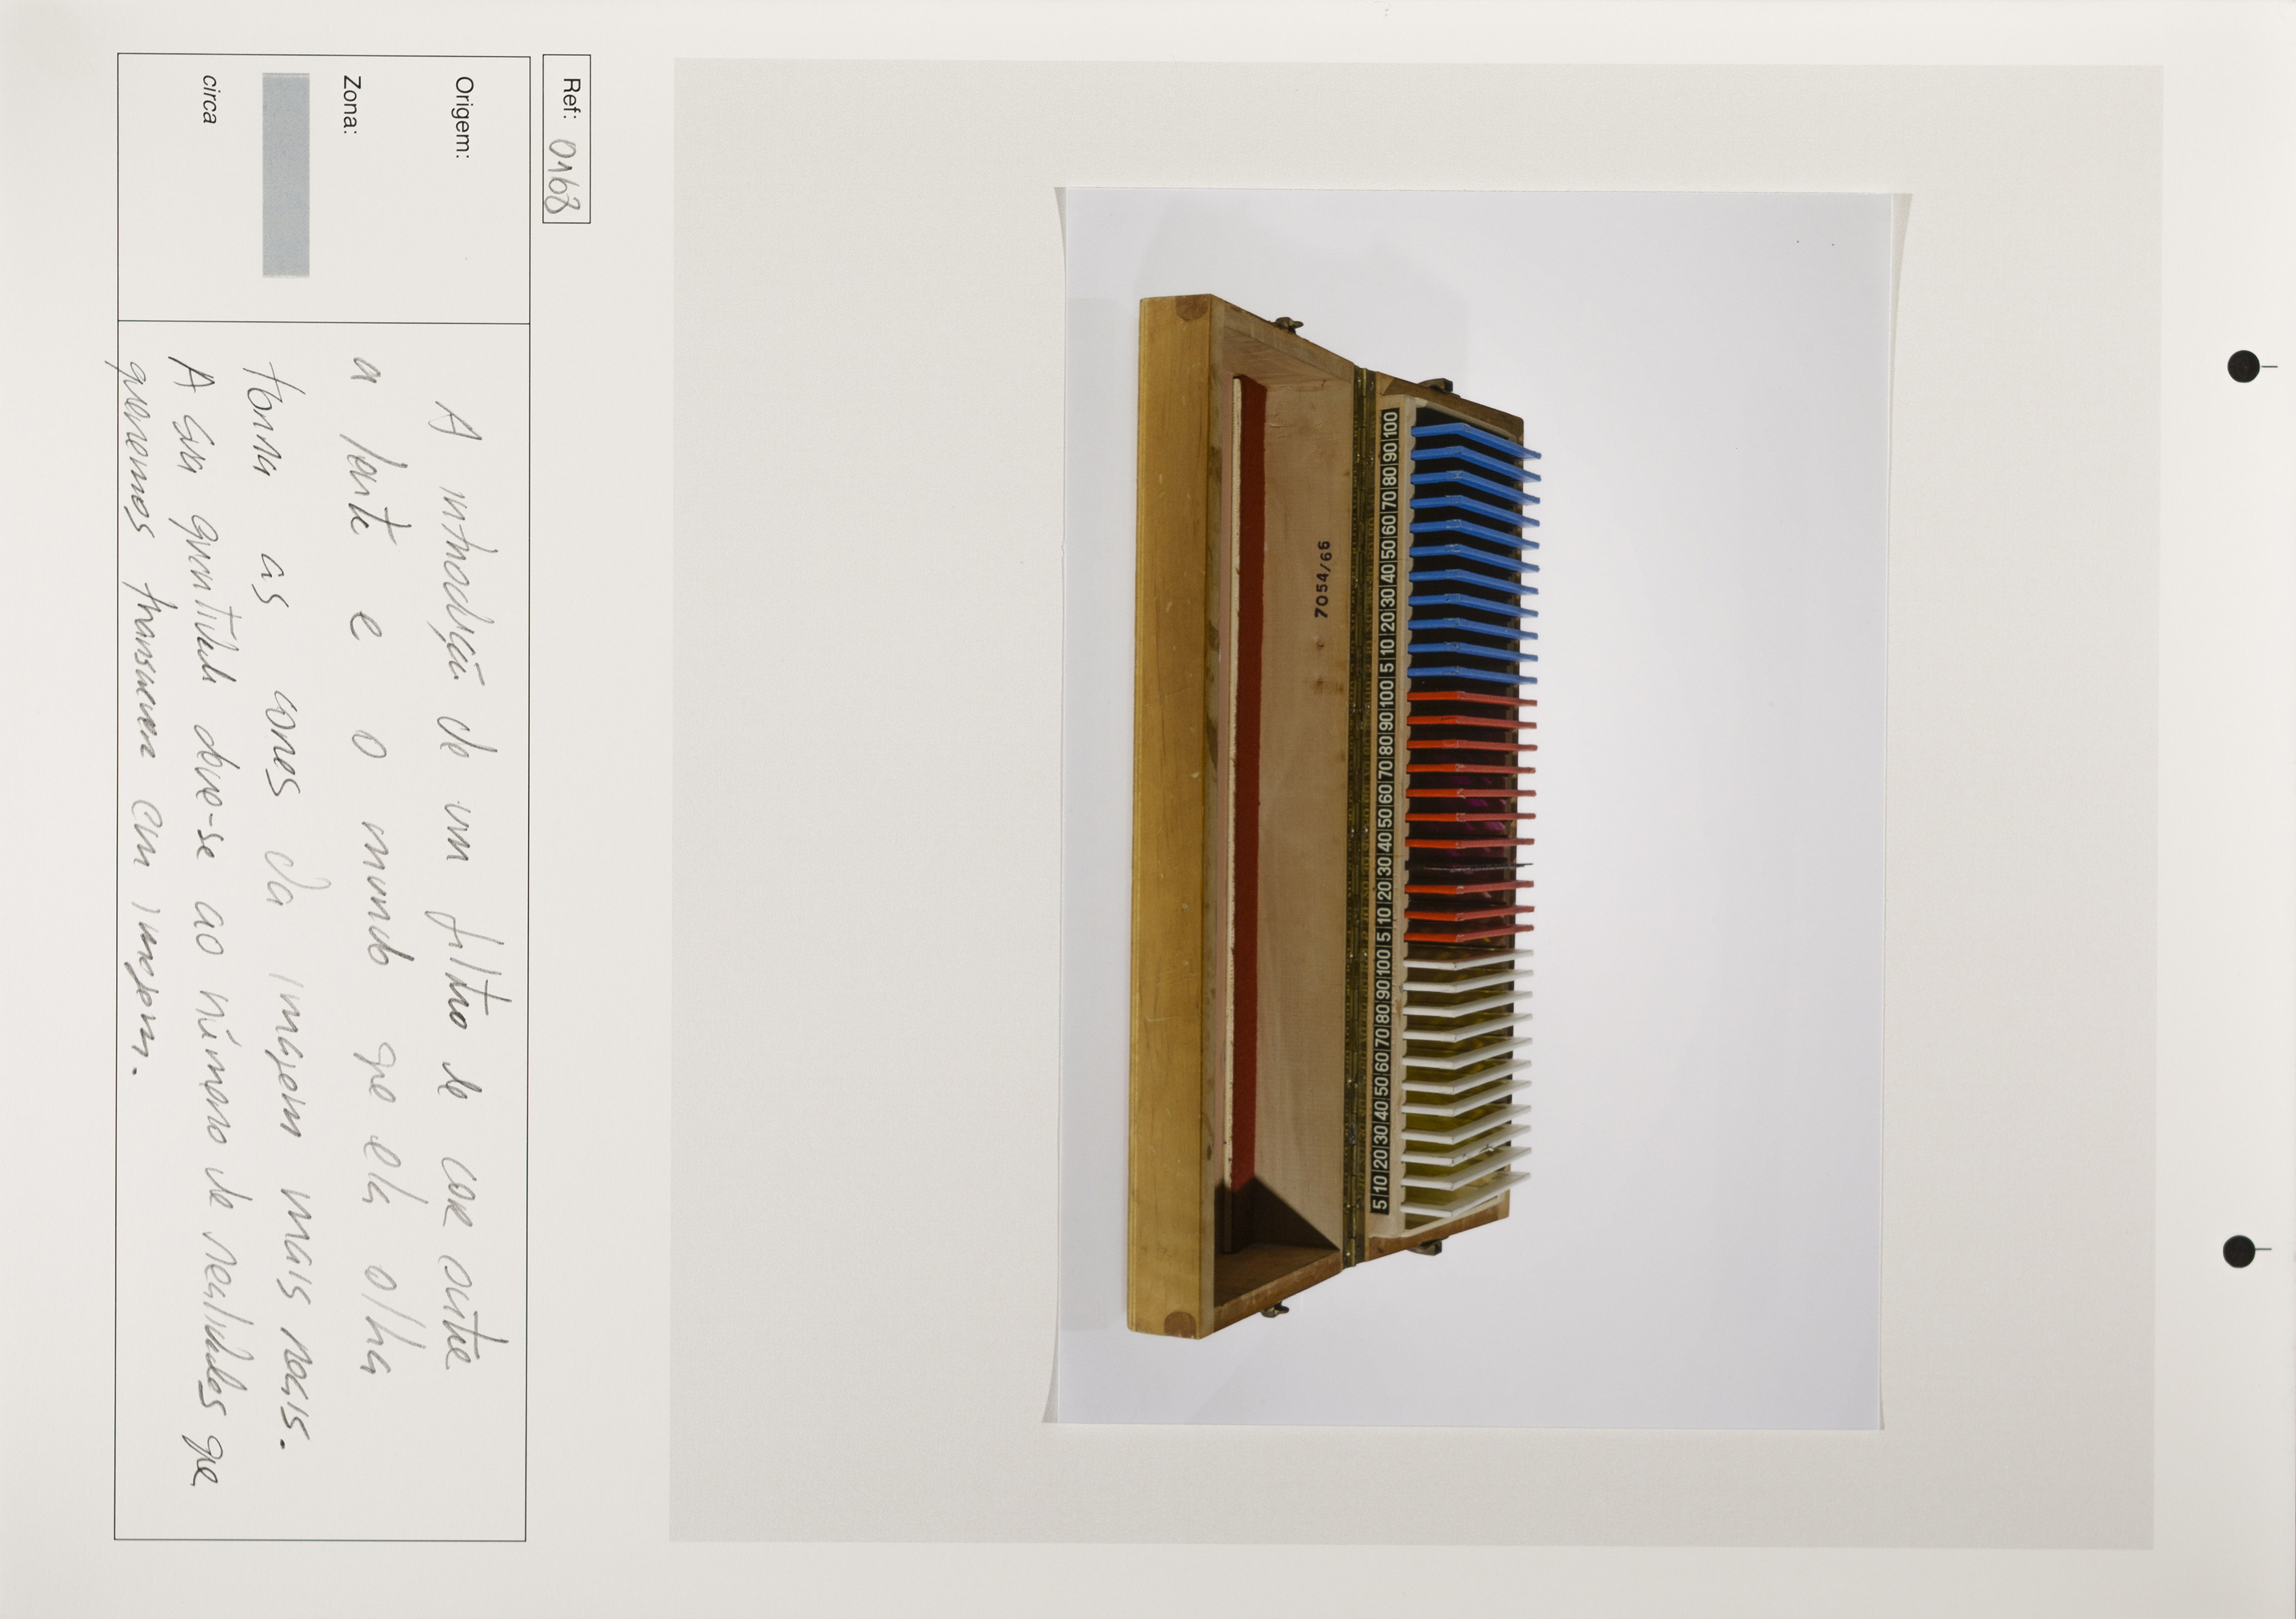 7054/66
5 10 20 30 40 50 60 70 80 90 100 5 10 20 30 40 50 60 70 80 90 100 5 10 20 30 40 50 60 70 80 90 100
Ref: 0168
Origem:
Zona:
circa
A introdução de um filtro de cor entre
a lente e o mundo que ela olha
torna as cores da imagem mais reais.
A sua quantidade deve-se ao número de realidades que
queremos transcrever em imagem.